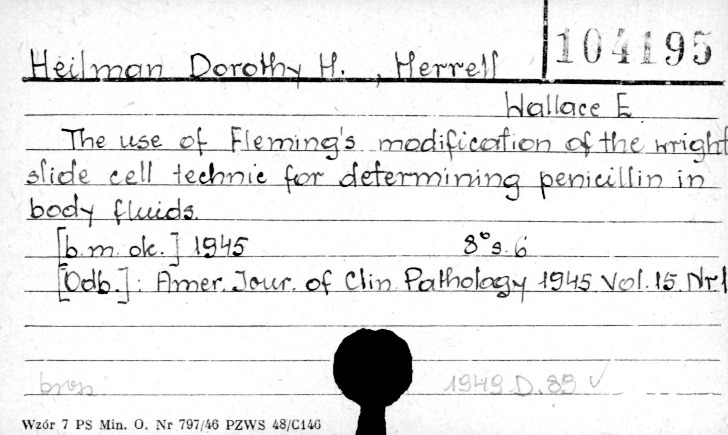 104195
Heilman Dorothy H. , Herrell
Wallace E.
The use of Fleming's modification of the wright
slide cell technic for determining penicillin in
body fluids.
[b.m. ok.] 1945 8° s. 6
[Odb.]: Amer. Jour. of Clin. Pathology 1945 Vol. 15. Nr. 1
brosz
1949 D. 89 √
Wzór 7 PS Min. O. Nr 797/46 PZWS 48/C146